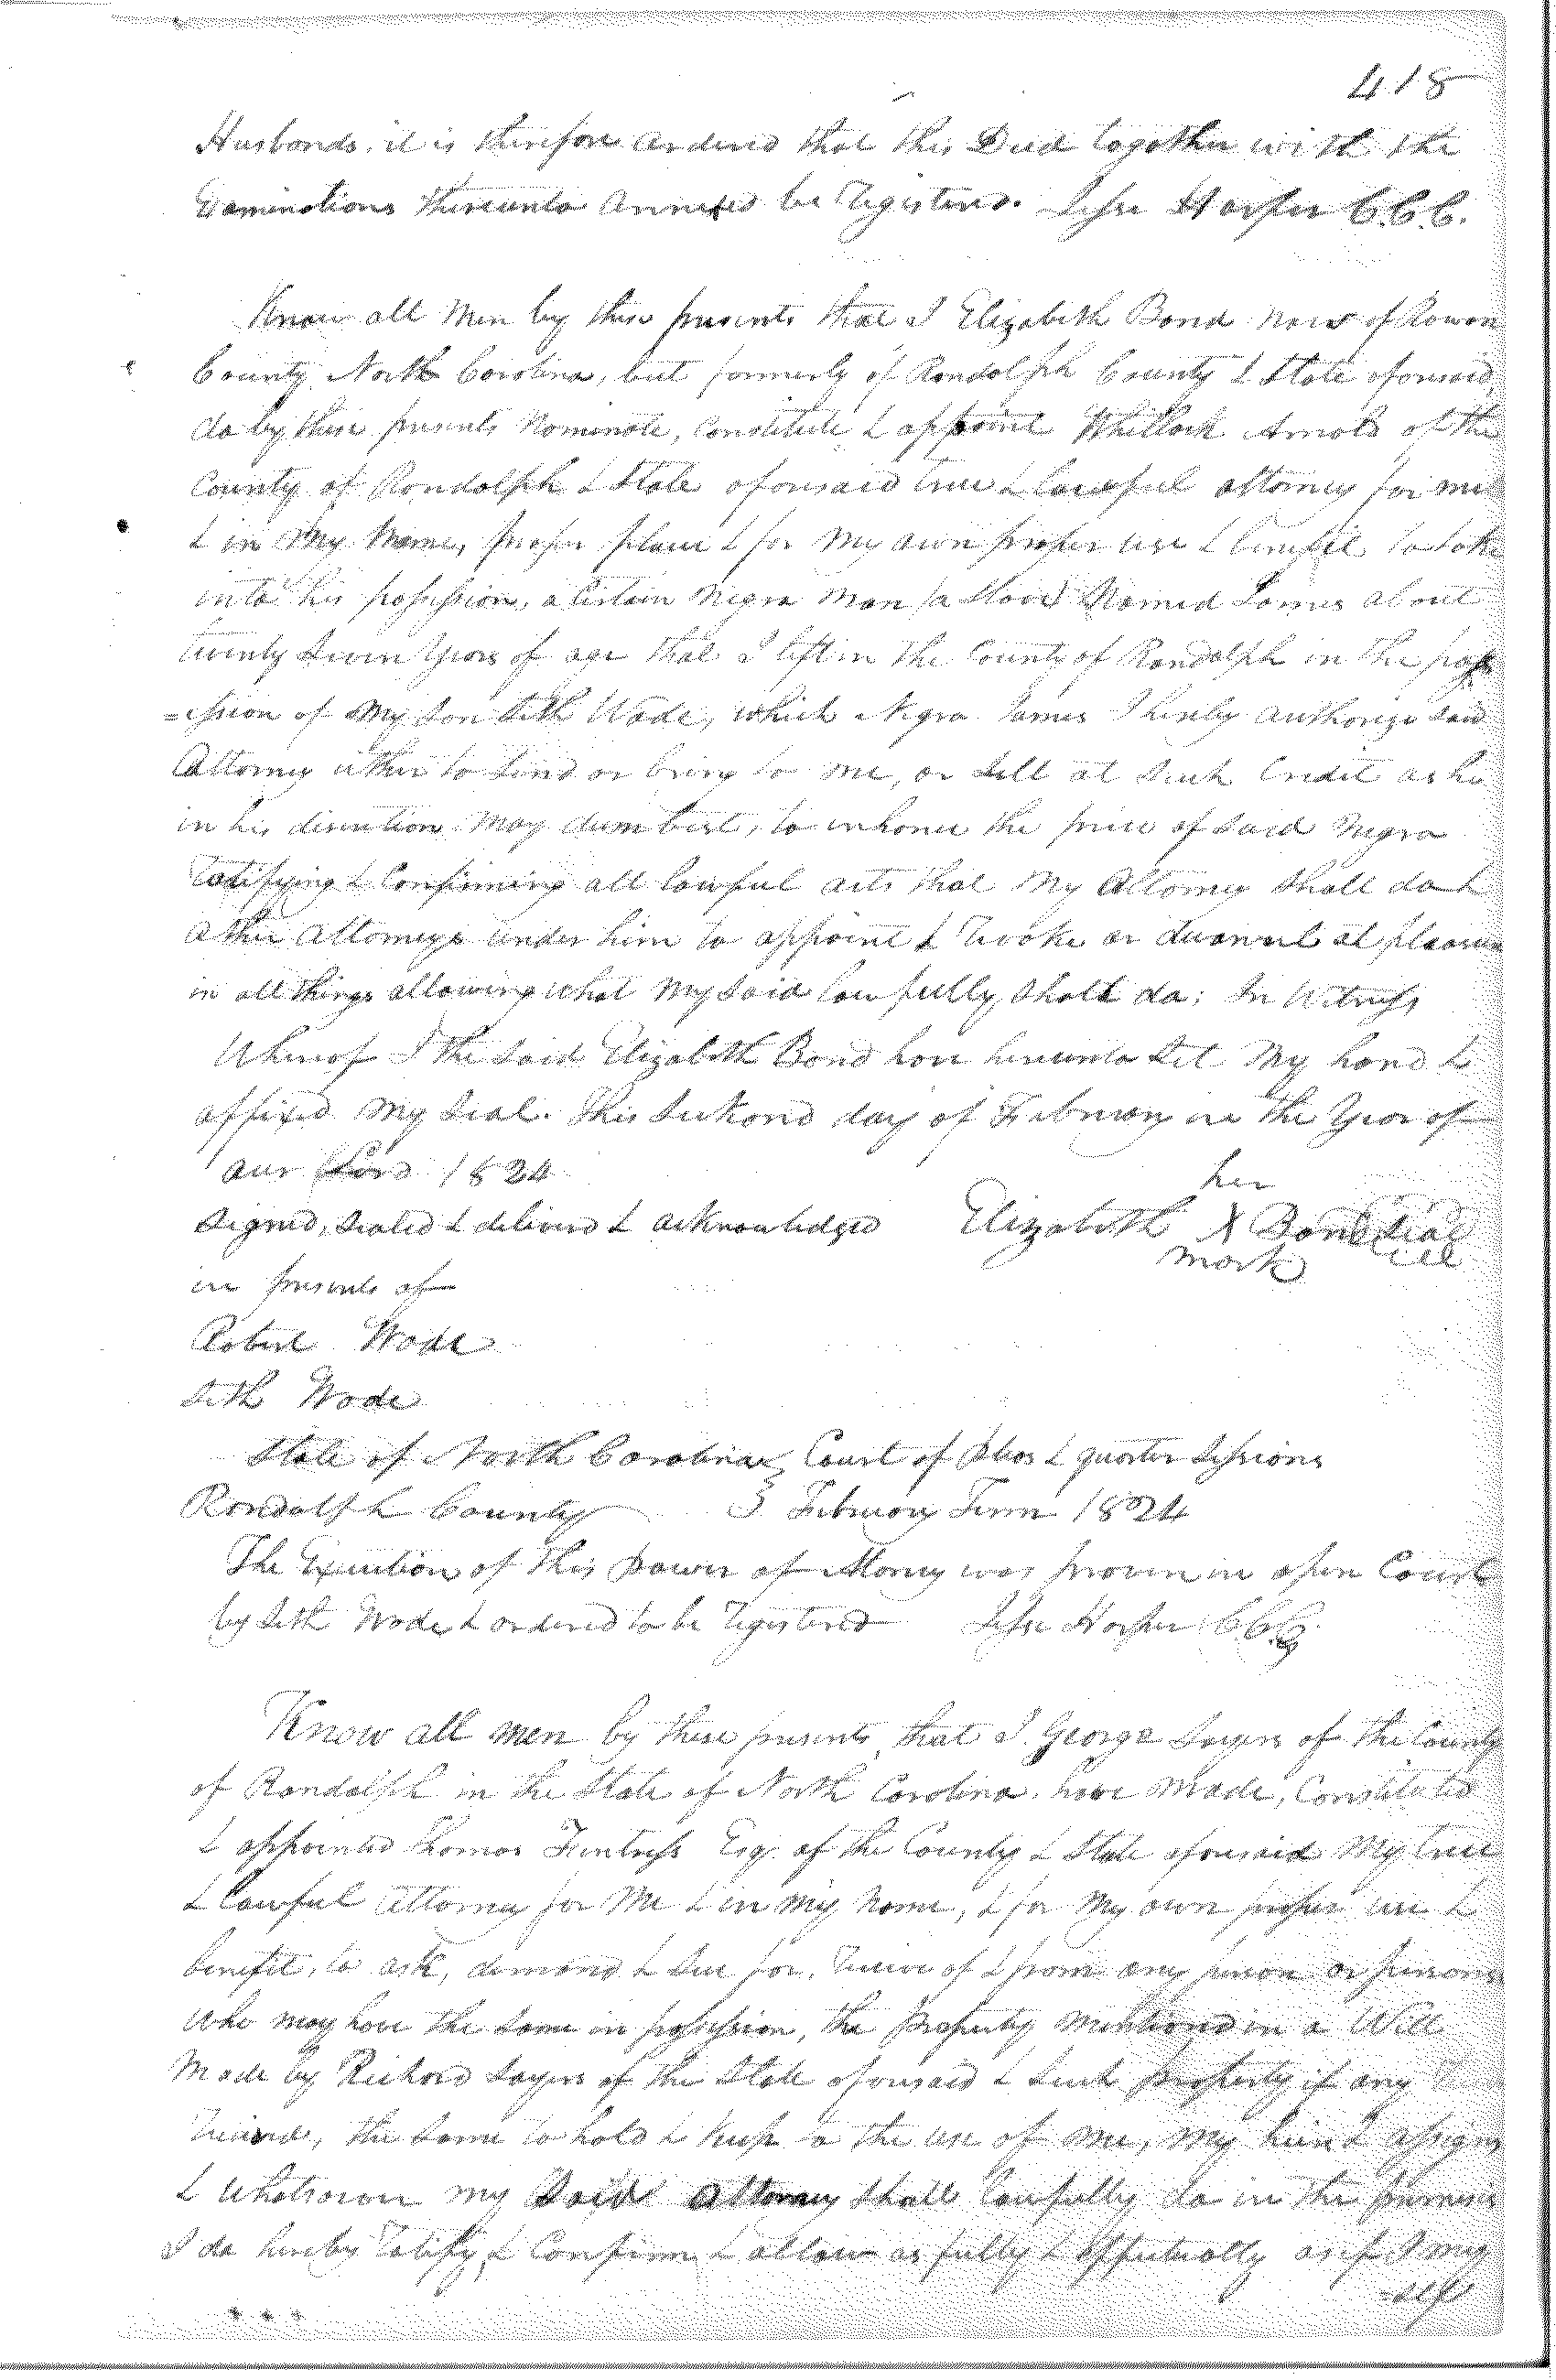 418
Husbands. it is therefore ordered that this Deed together with the
Examinations thereunto annexed be Registered. Jesse Harper C.C.C.
Know all Men by these presents that I Elizabeth Bond now of Rowan
County North Carolina, but formerly of Randolph County & State aforesaid,
do by these presents Nominate, Constitute & appoint Whitlock Arnold of the
County of Randolph & State aforesaid true & lawful attorney for me
& in My Name, proper place & for My own proper use & benefit to take
into his possession, a Certain Negro Man (a Slave) Named James about
twenty Seven Years of age that I left in the County of Randolph in the poss
=ession of My Son Seth Wade, which Negro James I hereby authorize said
Attorney either to Send or bring to me, or Sell at Such Credit as he
in his discretion May deem best, to enhance the price of said Negro
ratifying & Confirming all lawful acts that My Attorney Shall do &
other Attorneys under him to appoint & revoke or disannul at pleasure
in all things allowing what My Said lawfully Shall do; In Witness
Whereof I the Said Elizabeth Bond have hereunto Set My hand &
affixed My Seal. this Seckond day of February in the Year of
our Lord 1824
her
Signed, Sealed & delivered & acknowledged Elizabeth X Bond Seal
mark
in presents of
Robert Wade
Seth Wade
State of North Carolina } Court of Pleas & quarter Sessions
Randolph County } February Term 1824
The Execution of this Power of Attorney was proven in open Court
by Seth Wade & ordered to be registered Jesse Harper C.C.C.
Know all men by these presents that I George Sayers of the County
of Randolph in the State of North Carolina. have Made, Constituted
& appointed Thomas Fentriss Esq. of the County & State aforesaid My true
& lawful Attorney for Me & in My Name, & for My own proper use &
benefit, to ask, demand & Sue for, receive of & from any person or persons
who may have the Same in possession, the Property mentioned in a Will
Made by Richard Sayers of the State aforesaid & Such property if any
received, the Same to hold & keep to the use of me, my heirs & assigns
& whatsoever my Said attorney Shall lawfully do in the premises
I do hereby ratify & Confirm & allow as fully & effectually as if I my
-self